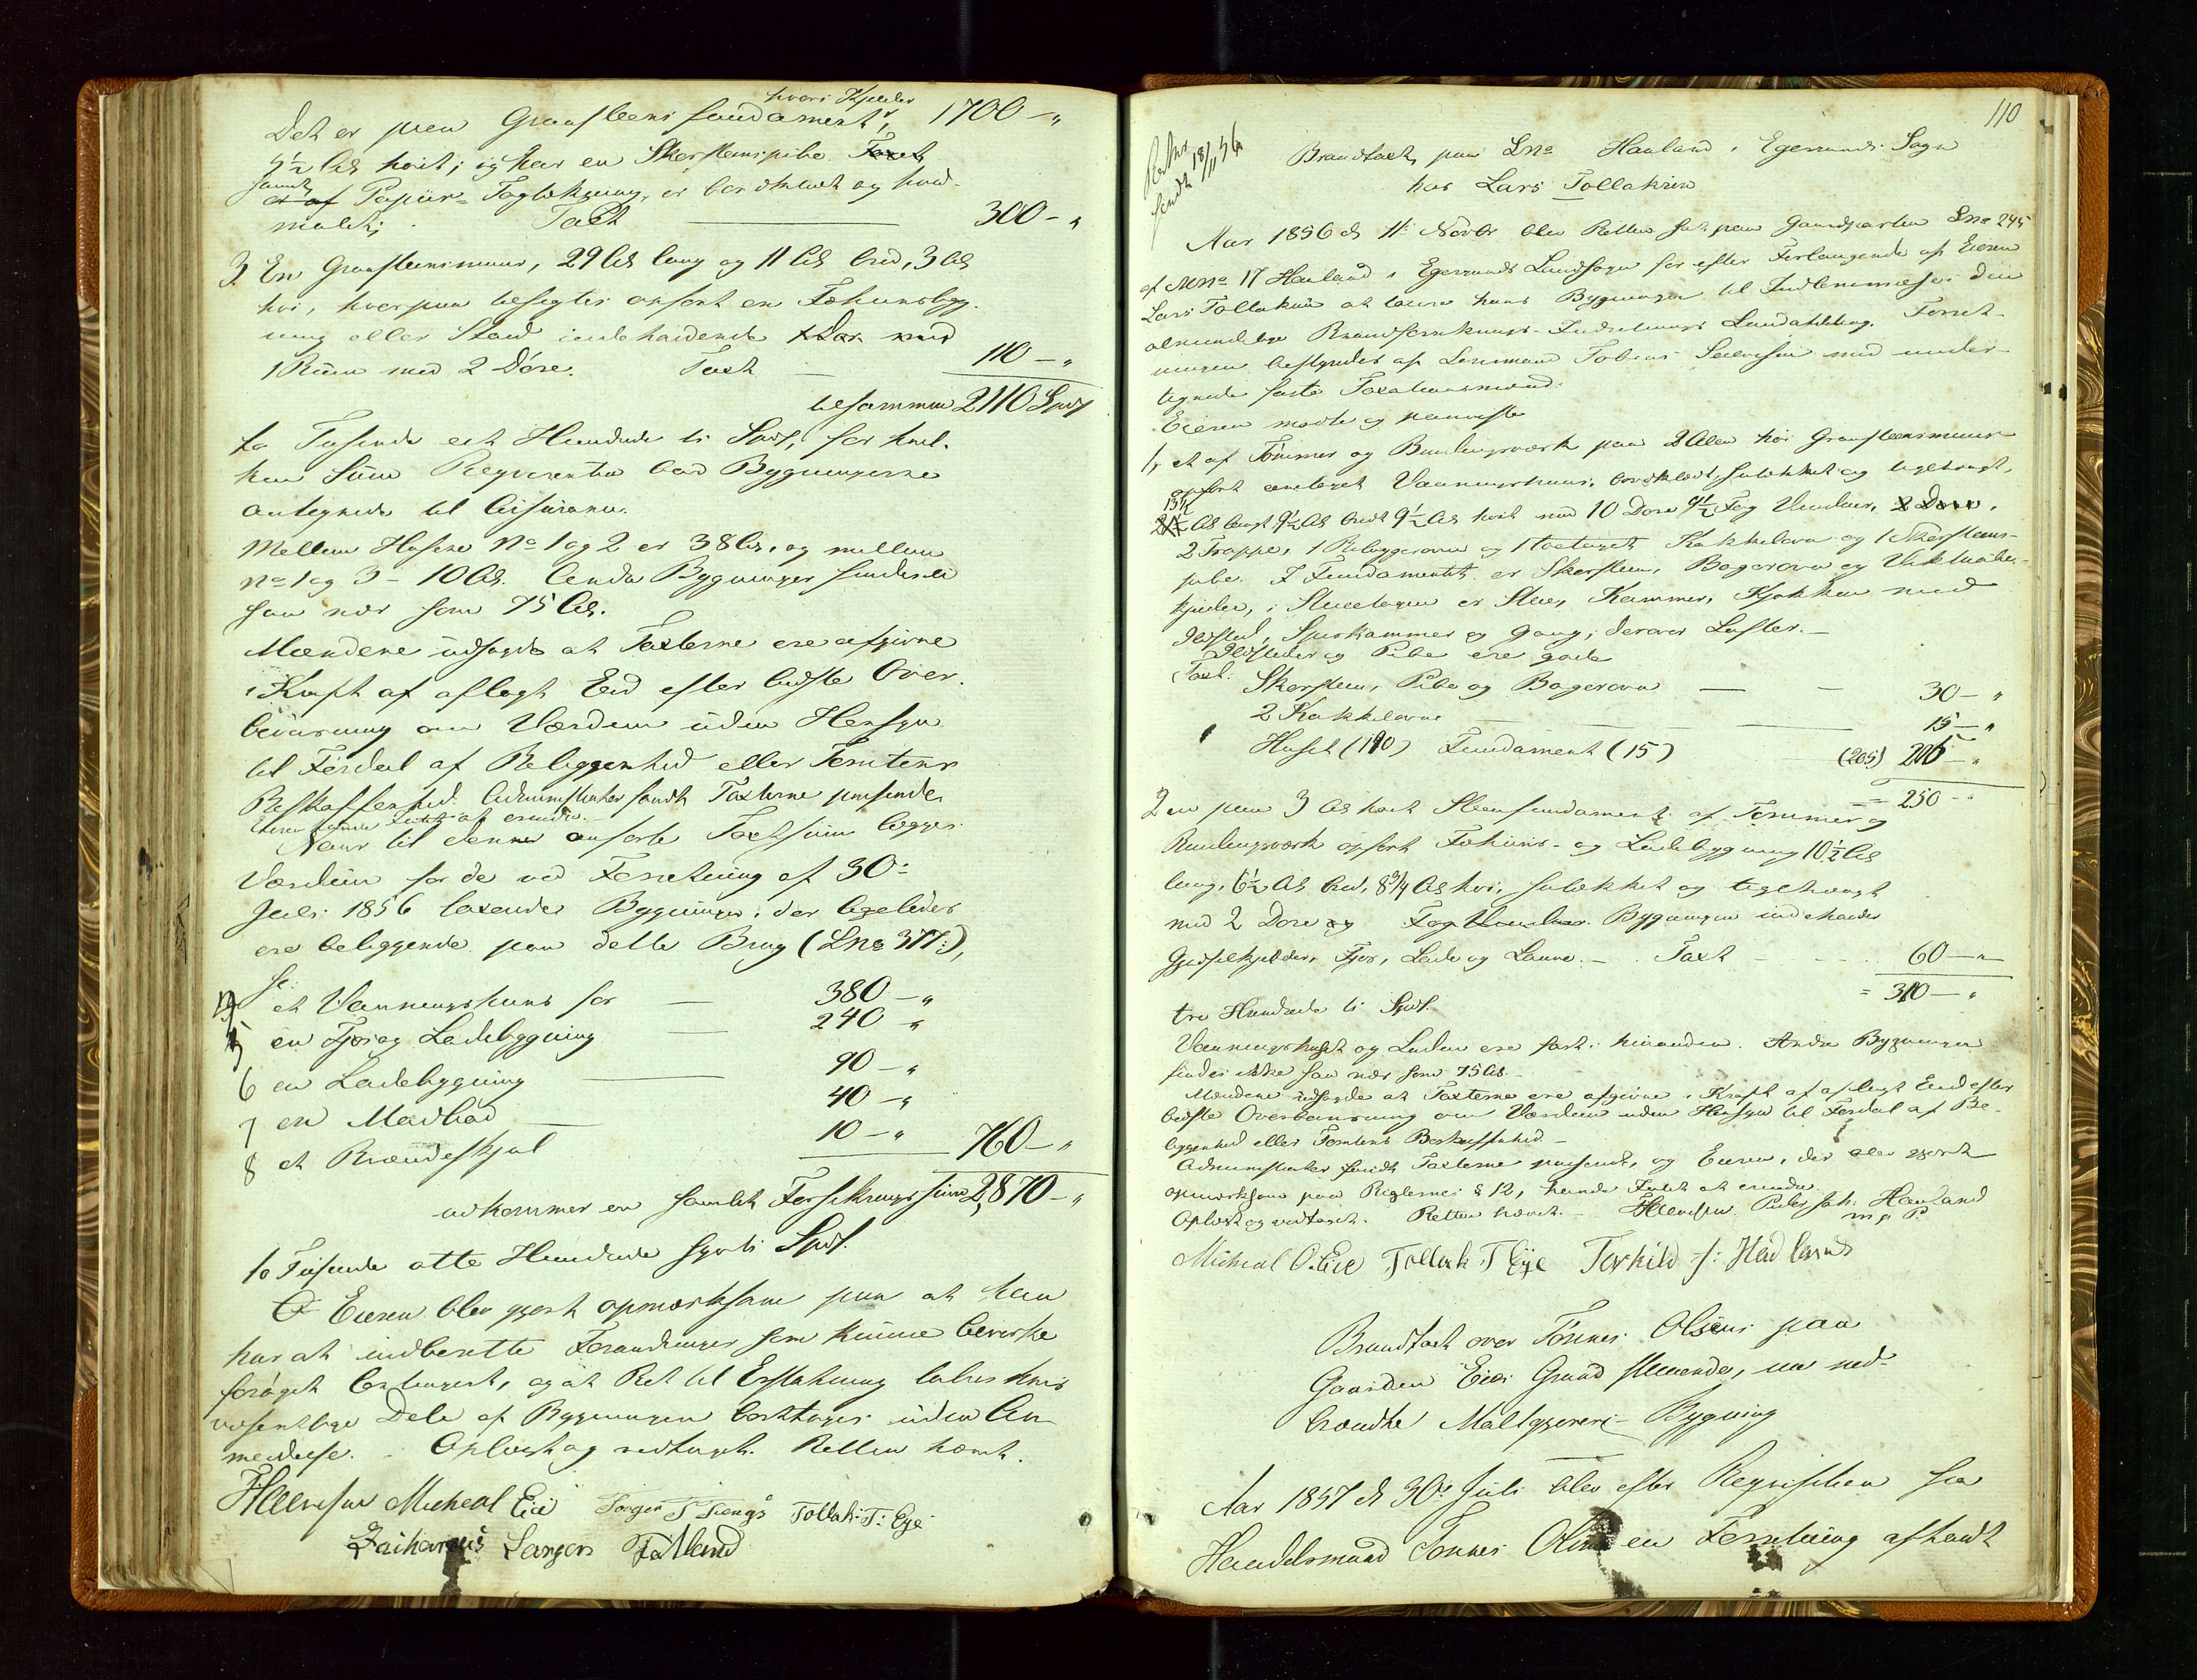 hvori Kjelder
Det er paa Graasteens fundament, 1700 - „
3½ Al. høit; og har en Skorsteenspibe. Taxt
samt
er af Papiir-Taglækning, er bordklædt og hvid-
malet; Taxt 300 - „
3. En Graasteensmuur, 29 Al. lang og 11 Al. bred, 3 Al.
høi, hvorpaa besigtes opført en Fæhuusbyg-
ning eller Stald indeholdende
1 Rum med 2 Døre. Taxt 110 - „
tilsammen 2110 Spd.
to Tusinde eet Hundrede ti Spd., for hvil-
ken Sum Reqvirenten bad Bygningerne
antegnede til Assurance.
Mellem Husene No 1 og 2 er 38 Al., og mellem
No 1 og 3 - 10 Al. Andre Bygninger findes ei
saa nær som 75 Al.
Mændene udsagde at Taxterne ere afgivne
i Kraft af aflagt Eed efter bedste Over-
beviisning om Værdien uden Hensyn
til Fordeel af Beliggenhed eller Tomtens
Beskaffenhed. Administrator fandt Taxterne passende,
Eieren havde Intet at erindre.
Naar til denne anførte Taxtsum lægges
Værdien for de ved Forretning af 30te
Juli 1856 taxerede Bygninger, der ligeledes
ere beliggende paa dette Brug (Lno 377:),
et Vaaningshuus for 380 - „
5 en Fjøs og Ladebygning 240 „
6 en Ladebygning 90 - „
7 en Madbod 40 - „
8 et Brændeskjul 10 - „ 760 - „
udkommer en samlet Forsikringssum 2,870 - „
to Tusinde otte Hundrede syvti Spd.
Eieren blev gjort opmærksom paa at han
har at indberette Forandringer som kunne bevirke
forøget Contingent, og at Ret til Erstatning tabes hvis
væsentlige Dele af Bygningen borttages uden An-
meldelse. - Oplæst og vedtaget. Retten hævet.
Micheal Eie Tollak T: Eye
Zacharius Larsen

110
18/11 56
Brandtaxt paa Lno Havland i Egersunds Sogn
hos Lars Tollaksen
Aar 1856 d. 11te Novbr blev Retten sat paa Gaardparten Lno 245
af Mno 17 Havland i Egersunds Landsogn for efter Forlangende af Eieren
Lars Tollaksen at taxere hans Bygninger til Indlemmelse i den
almindelige Brandforsikrings-Indretnings Landafdeling. Forret-
ningen bestyredes af Lensmand Tobias med under-
tegnede faste Taxationsmænd.
Eieren mødte og paaviste
1, et af Tømmer og Bindingsværk paa 2 Alen høi Graasteensmuur
opført eenetages Vaaningshuus, bordklædt, sutækket og teglhængt,
13½
Al. langt 9½ Al. bredt 9½ Al. høit med 10 Døre 9½ Fag Vinduer, 2 Døre,
2 Trappe, 1 Bilæggerovn og 1 toetages Kakkelovn og 1 Skorsteens-
pibe. I Fundamentet er Skorsteen, Bagerovn og
kjelder, i Stueetagen er Stue, Kammer, Kjøkken med
Ildsted, Spiskammer og Gang; derover Lofter. -
Ildsteder og Pibe ere gode
Taxt: Skorsteen, Pibe og Bagerovn 30 - „
2 Kakkelovne 15 - „
Huset (190) Fundament (15) (205) 205 - „
= 250 - „
2 en paa 3 Al. høit Steenfundament af Tømmer og
Bindingsværk opført Fæhuus- og Ladebygning 10½ Al.
lang, 6½ Al. bred, 8¾ Al. høi, sutækket og teglhængt
med 2 Døre og Fag Vinduer. Bygningen indeholder
Gjødselkjelder, Fjøs, Lade og Laave. - Taxt 60 - „
= 310 - „
tre Hundrede ti Spd.
Vaaningshuset og Laden ere fast i hinanden. Andre Bygninger
findes ikke saa nær som 75 Al. -
Mændene udsagde at Taxterne ere afgivne i Kraft af aflagt Eed efter
bedste Overbeviisning om Værdien uden Hensyn til Fordeel af Be-
liggenhed eller Tomtens Beskaffenhed. -
Administrator fandt Taxterne passende, og Eieren, der blev gjort
opmærksom paa Reglernes § 12, havde Intet at erindre.
Oplæst og vedtaget. Retten hævet. - Peder Havland
m p P
Micheal O. Eie Tollak T Eye Torkild Hadland
Brandtaxt over Tønnes Olsens paa
Gaarden Eies Grund staaende, nu ned-
brændte Maltgjøreri-Bygning
Aar 1857 d. 30te Juli blev efter Reqvisition fra
Handelsmand Tønnes Olsen en Forretning afholdt